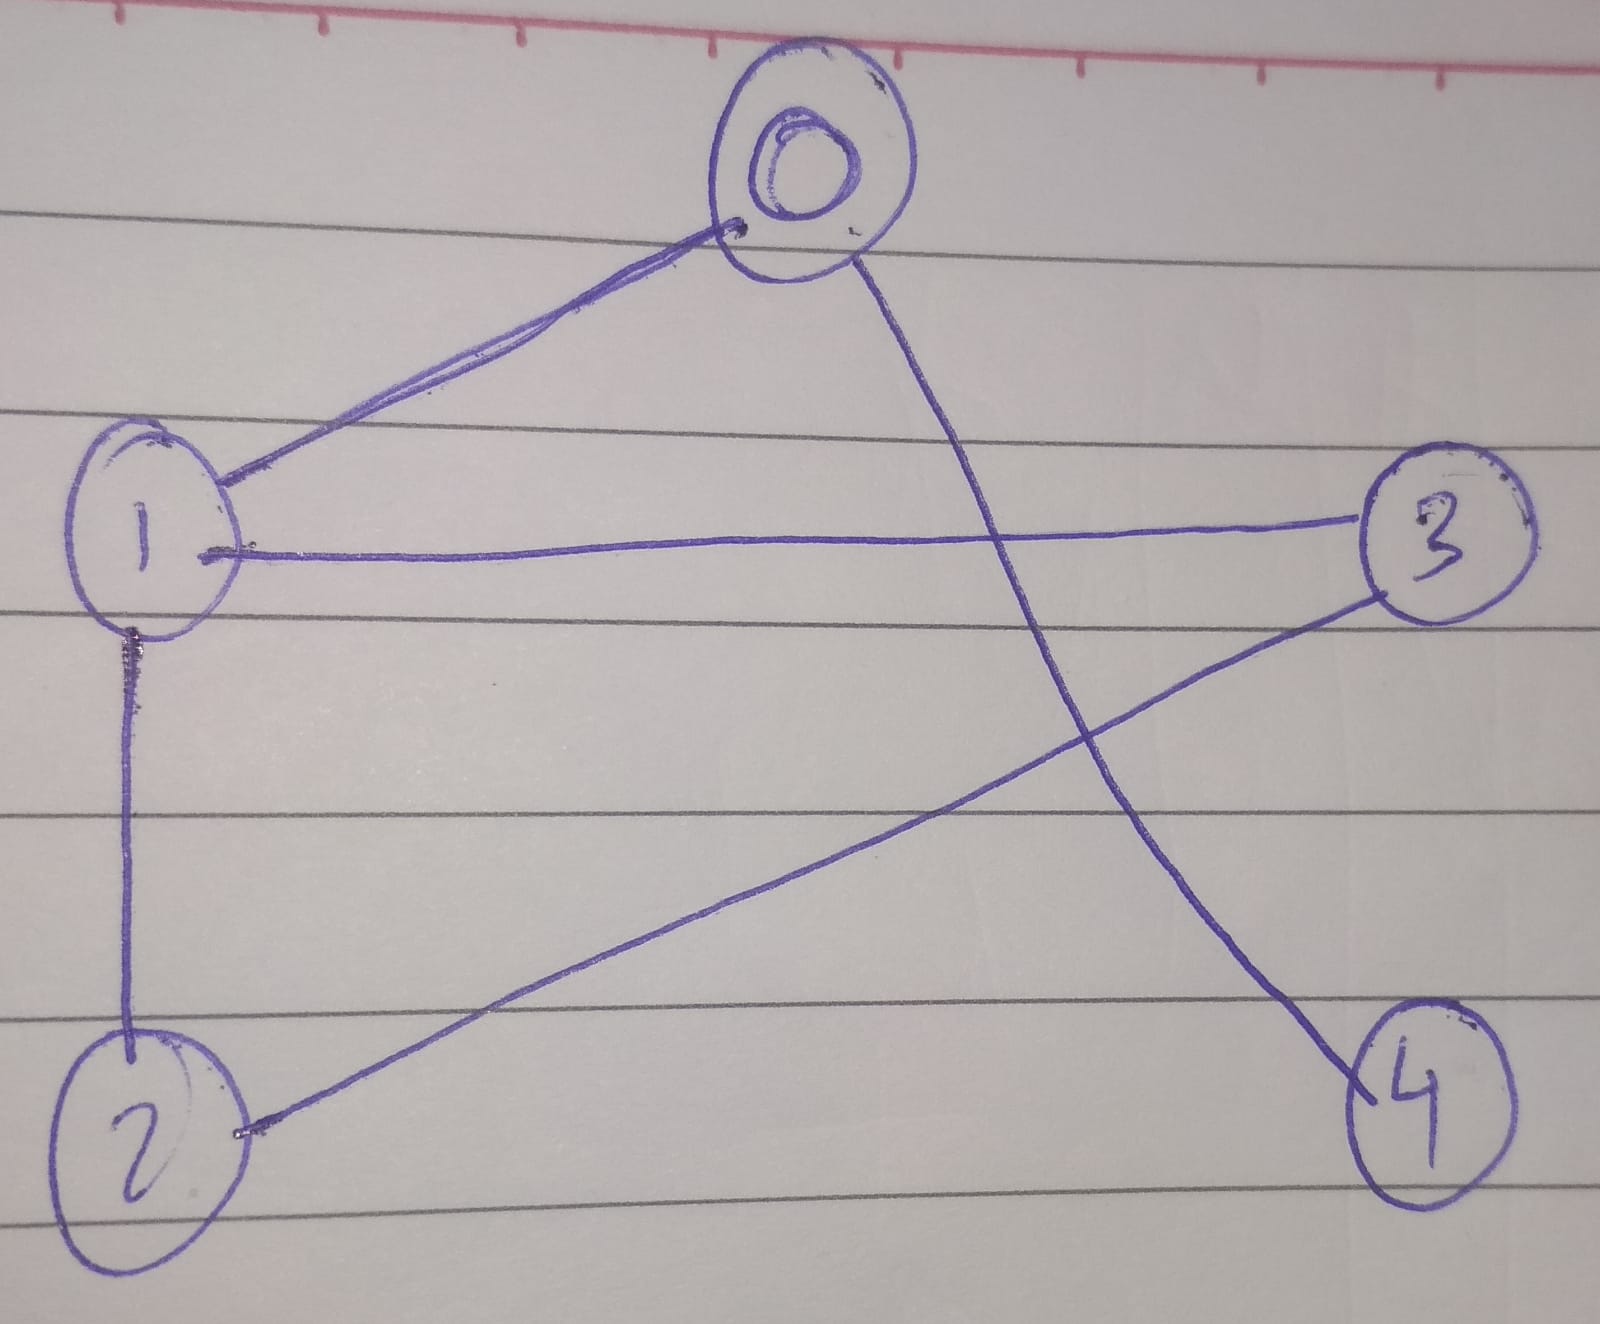 0
1 3
2 4